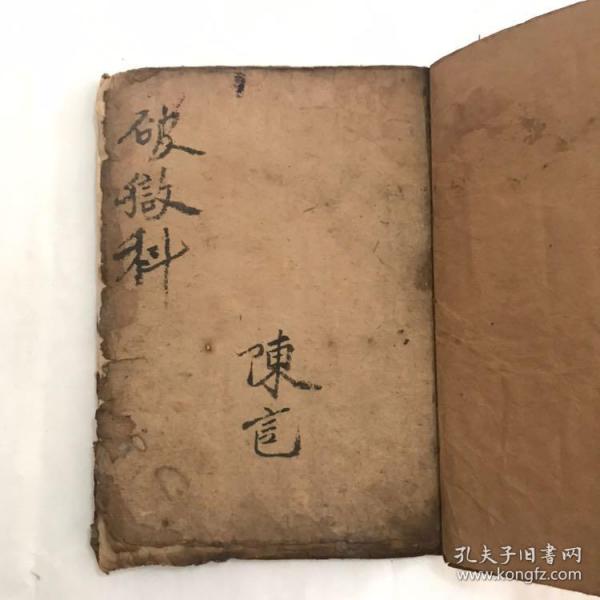 破獄科
陳
孔夫子旧書网
www.kongfz.com